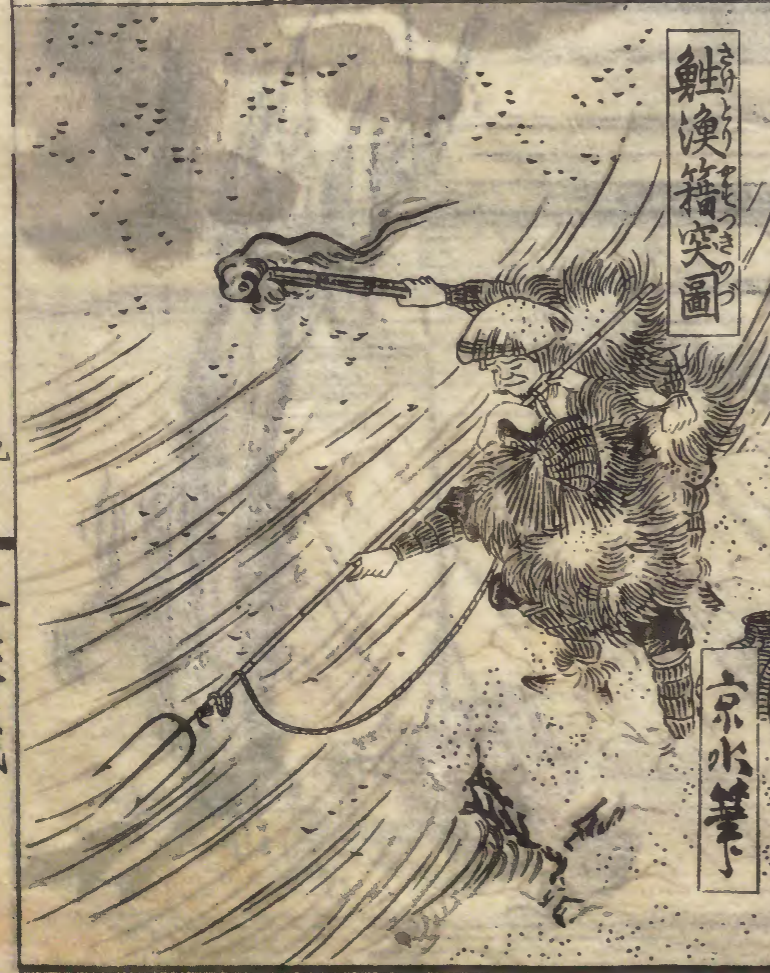 鮏漁簎突圖
さけとりやすつきのづ
京水筆